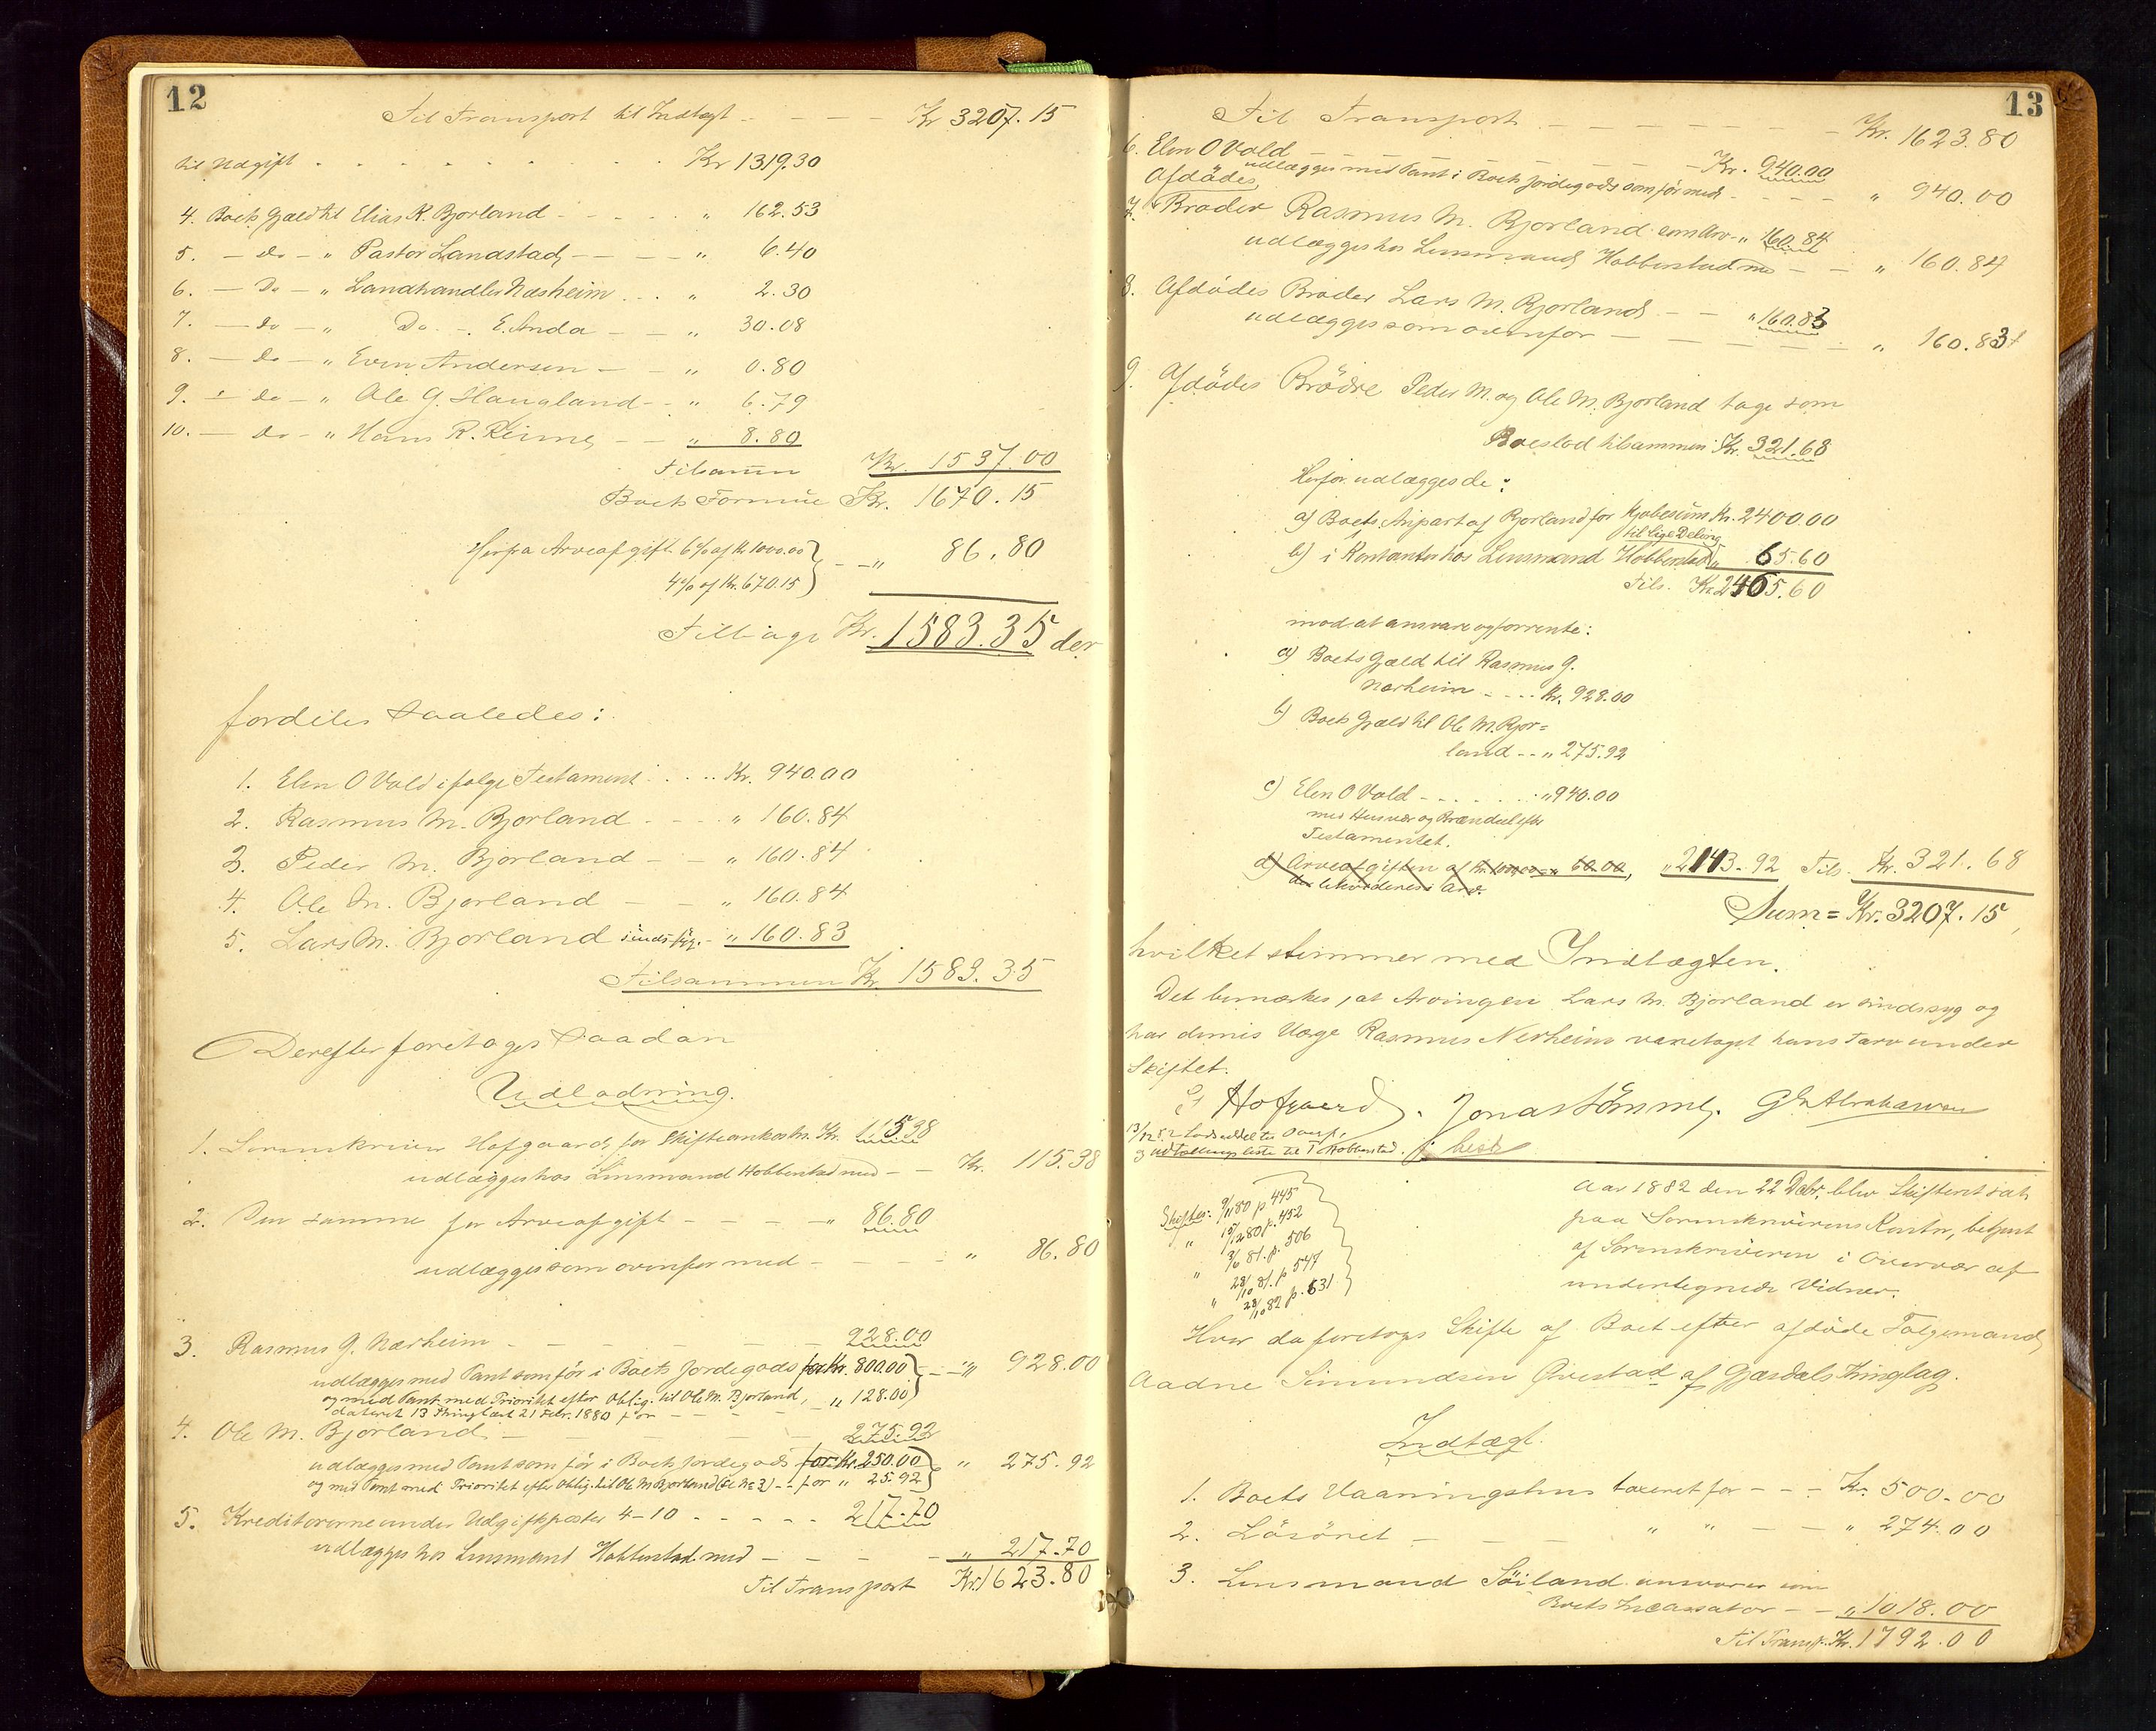 12
Til Transport til Indtægt - - - - Kr 3207.15
til Udgift . . . . . . . . . Kr 1319.30
4. Boets Gjæld til Elias R. Bjorland - - - - " 162.53
5. - do - " Pastor Landstad, - - - - " 6.40
6. - Do - " Landhandler Næsheim . . . " 2.30
7. - do - " Do. - E. Anda - - - " 30.08
8. - do - " Even Andersen - - " 0.80
9. - do - " Ole G. Haugland - - " 6.79
10. - do - " Hans R. Reime, - - " 8.80
Tilsamm Kr. 1537.00
Boets Formue Kr. 1670.15
Herfra Arveafgift 6 % af Kr 1000.00 } - - " 86.80
4 % af Kr. 670.15 }
Tilbage Kr. 1583.35 der
fordeles saaledes:
1. Elen O Vold ifølge Testament . . . . Kr. 940.00
2. Rasmus M. Bjorland . - - - " 160.84
3. Peder M. Bjorland - - - " 160.84
4. Ole M. Bjorland - - - " 160.84
5. Lars M. Bjorland sindssyg. - " 160.83
Tilsammen Kr 1583.35
Derefter foretages saadan
Udlodning.
1. Sorenskriver Hofgaard, for Skifteomkostn. Kr. 115.38
udlægges hos Linsmand Hobberstad med - - Kr. 115.38
2. Den samme for Arveafgift - - - - " 86.80
udlægges som ovenfor med - - - - - " 86.80
3. Rasmus G. Nærheim - - - - - 928.00
udlægges med Pant som før i Boets Jordegods for Kr. 800.00 } - - " 928.00
og med Pant med Prioritet efter Oblig. til Ole M. Bjorland, " 128.00 }
dateret 13 Thinglæst 21 Febr. 1880 for - - -
4. Ole M. Bjorland - - - - - 275.92
udlægges med Pant som før i Boets Jordegods for Kr. 250.00 } " 275.92
og med Pant med Prioritet efter Oblig. til Ole M Bjorland (se No 3) - - for " 25.92 }
5. Kreditorerne under Udgiftsposter 4-10 - - - - - 217.70
udlægges hos Linsmand Hobberstad med - - - - " 217.70
Til Transport Kr. 1623.80
13
Til Transport - - - - - - - Kr. 1623.80
6. Elen O Vold - - - - - - Kr. 940.00
udlægges med Pant i Boets Jordegods som før med - - - - " 940.00
7. Afdødes Broder Rasmus M. Bjorland som Arv - " 160.84
udlægges hos Linsmand Hobberstad med - - " 160.84
8. Afdødes Broder Lars M. Bjorland - - " 160.83
udlægges som ovenfor - - - - - " 160.83
9. Afdødes Brødre Peder M. og Ole M. Bjorland tage som
Boeslod tilsammen Kr. 321.68
Herfor udlægges de:
a) Boets Anpart af Bjorland for Kjøbesum Kr. 2400.00
til lige Deling
b) i Kontanter hos Linsmand Hobberstad " 65.60
Tils. Kr 2465.60
mod at ansvare og forrente:
a) Boets Gjæld til Rasmus G.
Nærheim - . . . Kr. 928.00
b) Boets Gjæld til Ole M. Bjor=
land - - " 275.92
c) Elen O Vold - - . . . . " 940.00
med Husvær og Brændsel efter
Testamentet.
d) Arveafgiften af Kr. 1000.00 - " 60.00, " 2143.92 Tils. Kr. 321.68
der likviderer i Arv.
Sum = Kr. 3207.15,
hvilket stemmer med Indtægten.
Det bemærkes, at Arvingen Lars M. Bjorland er sindssyg og
har dennes Værge Rasmus Nerheim varetaget hans Tarv under
Skiftet.
Hofgaard. Jonas Lømmeli. G N Abrahamsen
og udtællingsliste til T Hobberstad.
Skiftes: 9/11 80 p 445
" 15/12 80 p. 452
3/6 81. p. 506
" 28/10 81. p 547
" 28/10 82 p. 631
Aar 1882 den 22 Debr. blev Skifteret sat
paa Sorenskriverens Kontor, betjent
af Sorenskriveren i Overvær af
undertegnede Vidner.
Hvor da foretoges Skifte af Boet efter afdøde Følgemand,
Aadne Simundsen Øvestad af Gjæsdals Thinglag.
Indtægt.
1. Boets Vaaningshus taxeret for - - - Kr. 500.00
2. Løsøret - - - " " - - " 274.00
3. Linsmand Søiland ansvarer som
Boets Incassator - - " 1018.00
Til Transp. Kr. 1792.00